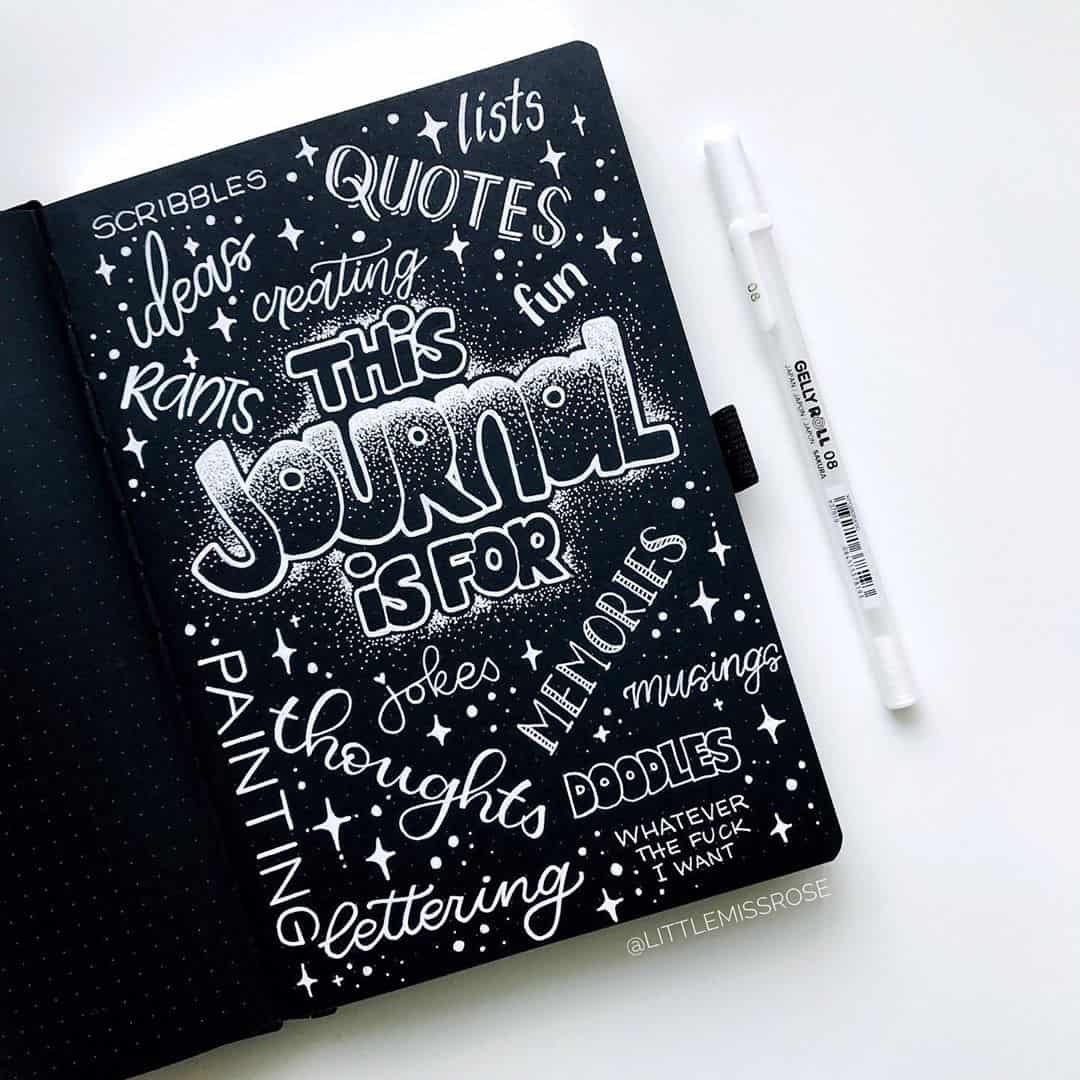 lists
QUOTES
SCRIBBLES
ideas
creating
fun
THis
RANTS
JOURNAL
is FOR
MEMORIES
jokes
musings
PAINTING
thoughts
DOODLES
WHATEVER
THE FUCK
I WANT
lettering
@LITTLEMISSROSE
08
GELLY ROLL 08
JAPAN | JAPON | JAPÓN SAKURA